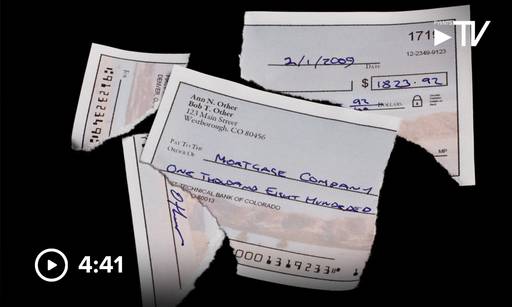 TV
1719
12-2349-9123
2/1/2009
DATE
$ 1823.92
92
DOLLARS
MP
Ann N. Other
Bob T. Other
123 Main Street
Westborough, CO 80456
PAY TO THE
ORDER OF
MORTGAGE COMPANY
ONE THOUSAND EIGHT HUNDERED
TECHNICAL BANK OF COLORADO
80013
Other
000131923
4:41